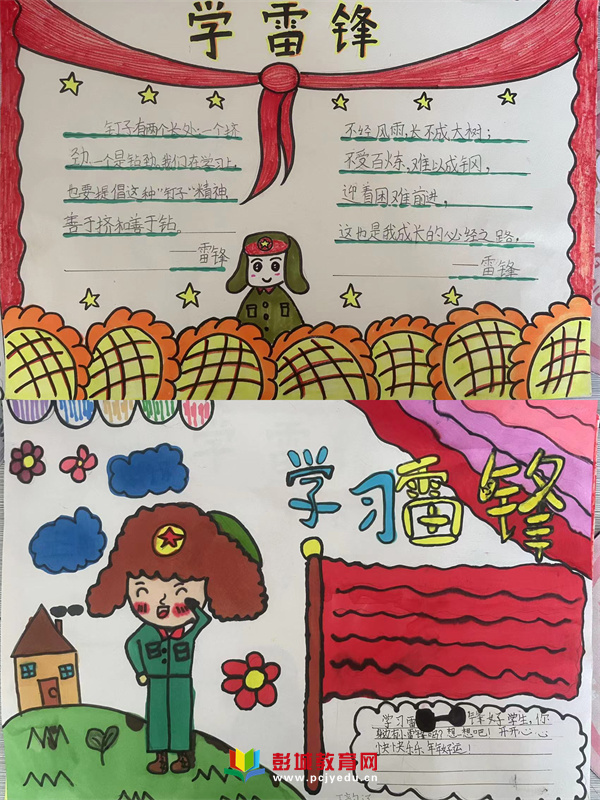 学雷锋
钉子有两个长处:一个挤
劲,一个是钻劲,我们在学习上,
也要提倡这种"钉子"精神,
善于挤和善于钻。
——雷锋
不经风雨,长不成大树;
不受百炼,难以成钢,
迎着困难前进,
这也是我成长的必经之路,
——雷锋
学习雷锋
学习雷 好学生,你
想想吧!开开心心
快快乐乐,年年好运!
彭城教育网
www.pcjyedu.cn